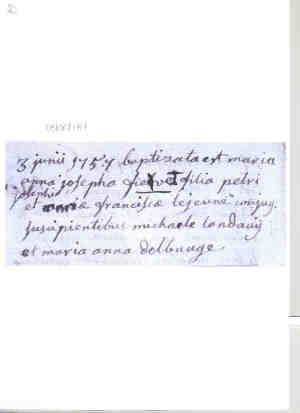 3 junii 1757 baptizata est maria
anna josepha filia petri
josephi
et franciscæ lejeune conjug.
suscipientibus michaele londavij
et maria anna delbauge